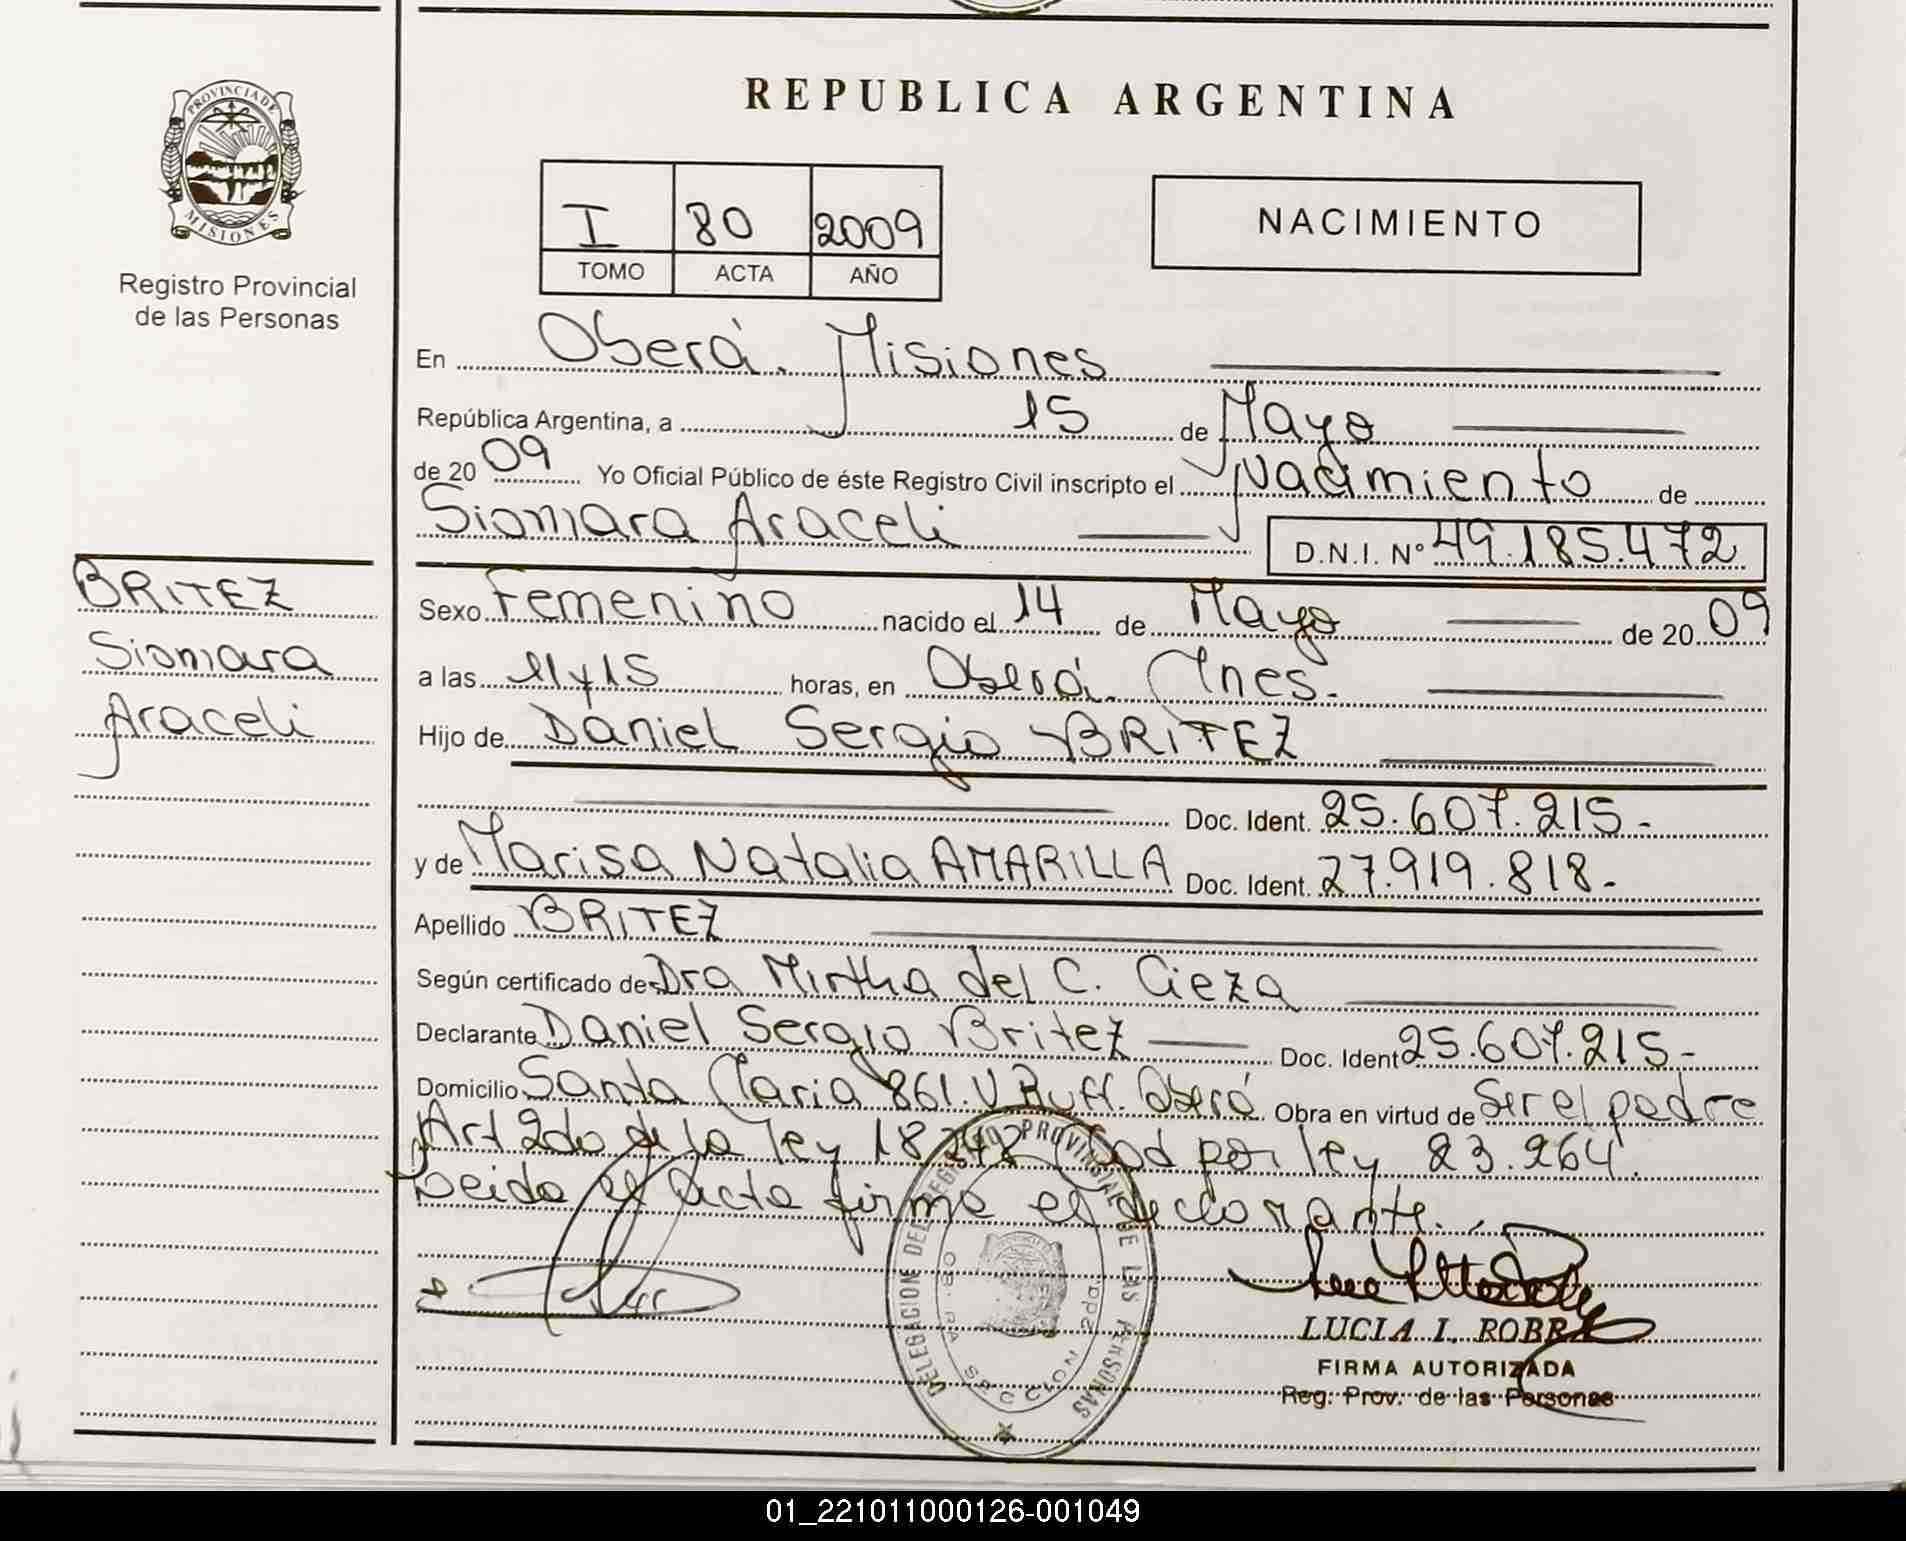 PROVINCIA DE
MISIONES
Registro Provincial
de las Personas
BRITEZ
Siomara
Araceli
REPUBLICA ARGENTINA
I 80 2009
TOMO ACTA AÑO
NACIMIENTO
En Oberá. Misiones
República Argentina, a 15 de Mayo
de 2009 Yo Oficial Público de éste Registro Civil inscripto el Nacimiento de
Siomara Araceli D.N.I. Nº 49.185.472
Sexo Femenino nacido el 14 de Mayo de 2009
a las 11 y 15 horas, en Oberá. Mnes.
Hijo de Daniel Sergio BRITEZ
Doc. Ident. 25.607.215.-
y de Marisa Natalia AMARILLA Doc. Ident. 27.919.818.-
Apellido BRITEZ
Según certificado de Dra Mirtha del C. Cieza
Declarante Daniel Sergio Britez Doc. Ident 25.607.215.-
Domicilio Santa Maria 861. V. Ruff. Oberá Obra en virtud de Ser el padre
Art 2do de la ley 18.248 Mod por ley 23.264.
Leida el acta firma el declarante.
DELEGACION DEL REGISTRO PROVINCIAL DE LAS PERSONAS
SECCION 2da.
LUCIA I. ROBRA
FIRMA AUTORIZADA
Reg. Prov. de las Personas
01_221011000126-001049